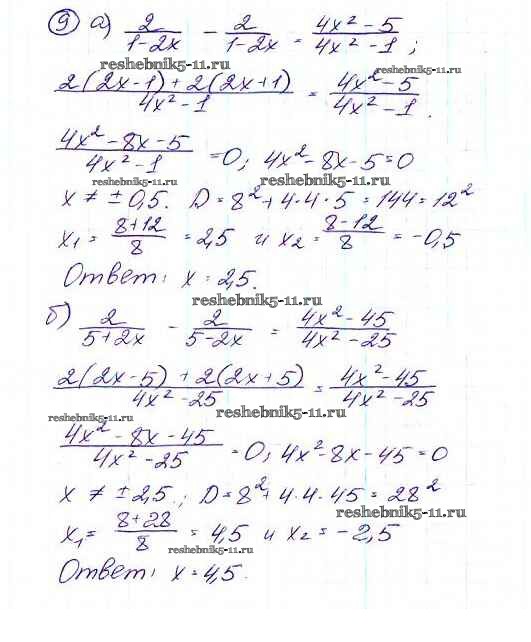 9 а) 2/(1-2x) - 2/(1-2x) = (4x²-5)/(4x²-1);
reshebnik5-11.ru
(2(2x-1)+2(2x+1))/(4x²-1) = (4x²-5)/(4x²-1).
reshebnik5-11.ru
(4x²-8x-5)/(4x²-1) = 0; 4x²-8x-5=0
reshebnik5-11.ru reshebnik5-11.ru
x ≠ ±0,5. D = 8²+4·4·5=144=12²
x₁ = (8+12)/8 = 2,5 и x₂ = (8-12)/8 = -0,5
Ответ: x = 2,5.
reshebnik5-11.ru
б) 2/(5+2x) - 2/(5-2x) = (4x²-45)/(4x²-25)
(2(2x-5)+2(2x+5))/(4x²-25) = (4x²-45)/(4x²-25)
reshebnik5-11.ru reshebnik5-11.ru
(4x²-8x-45)/(4x²-25) = 0; 4x²-8x-45=0
x ≠ ±2,5; D = 8²+4·4·45=28²
reshebnik5-11.ru
x₁ = (8+28)/8 = 4,5 и x₂ = -2,5
reshebnik5-11.ru
Ответ: x = 4,5.